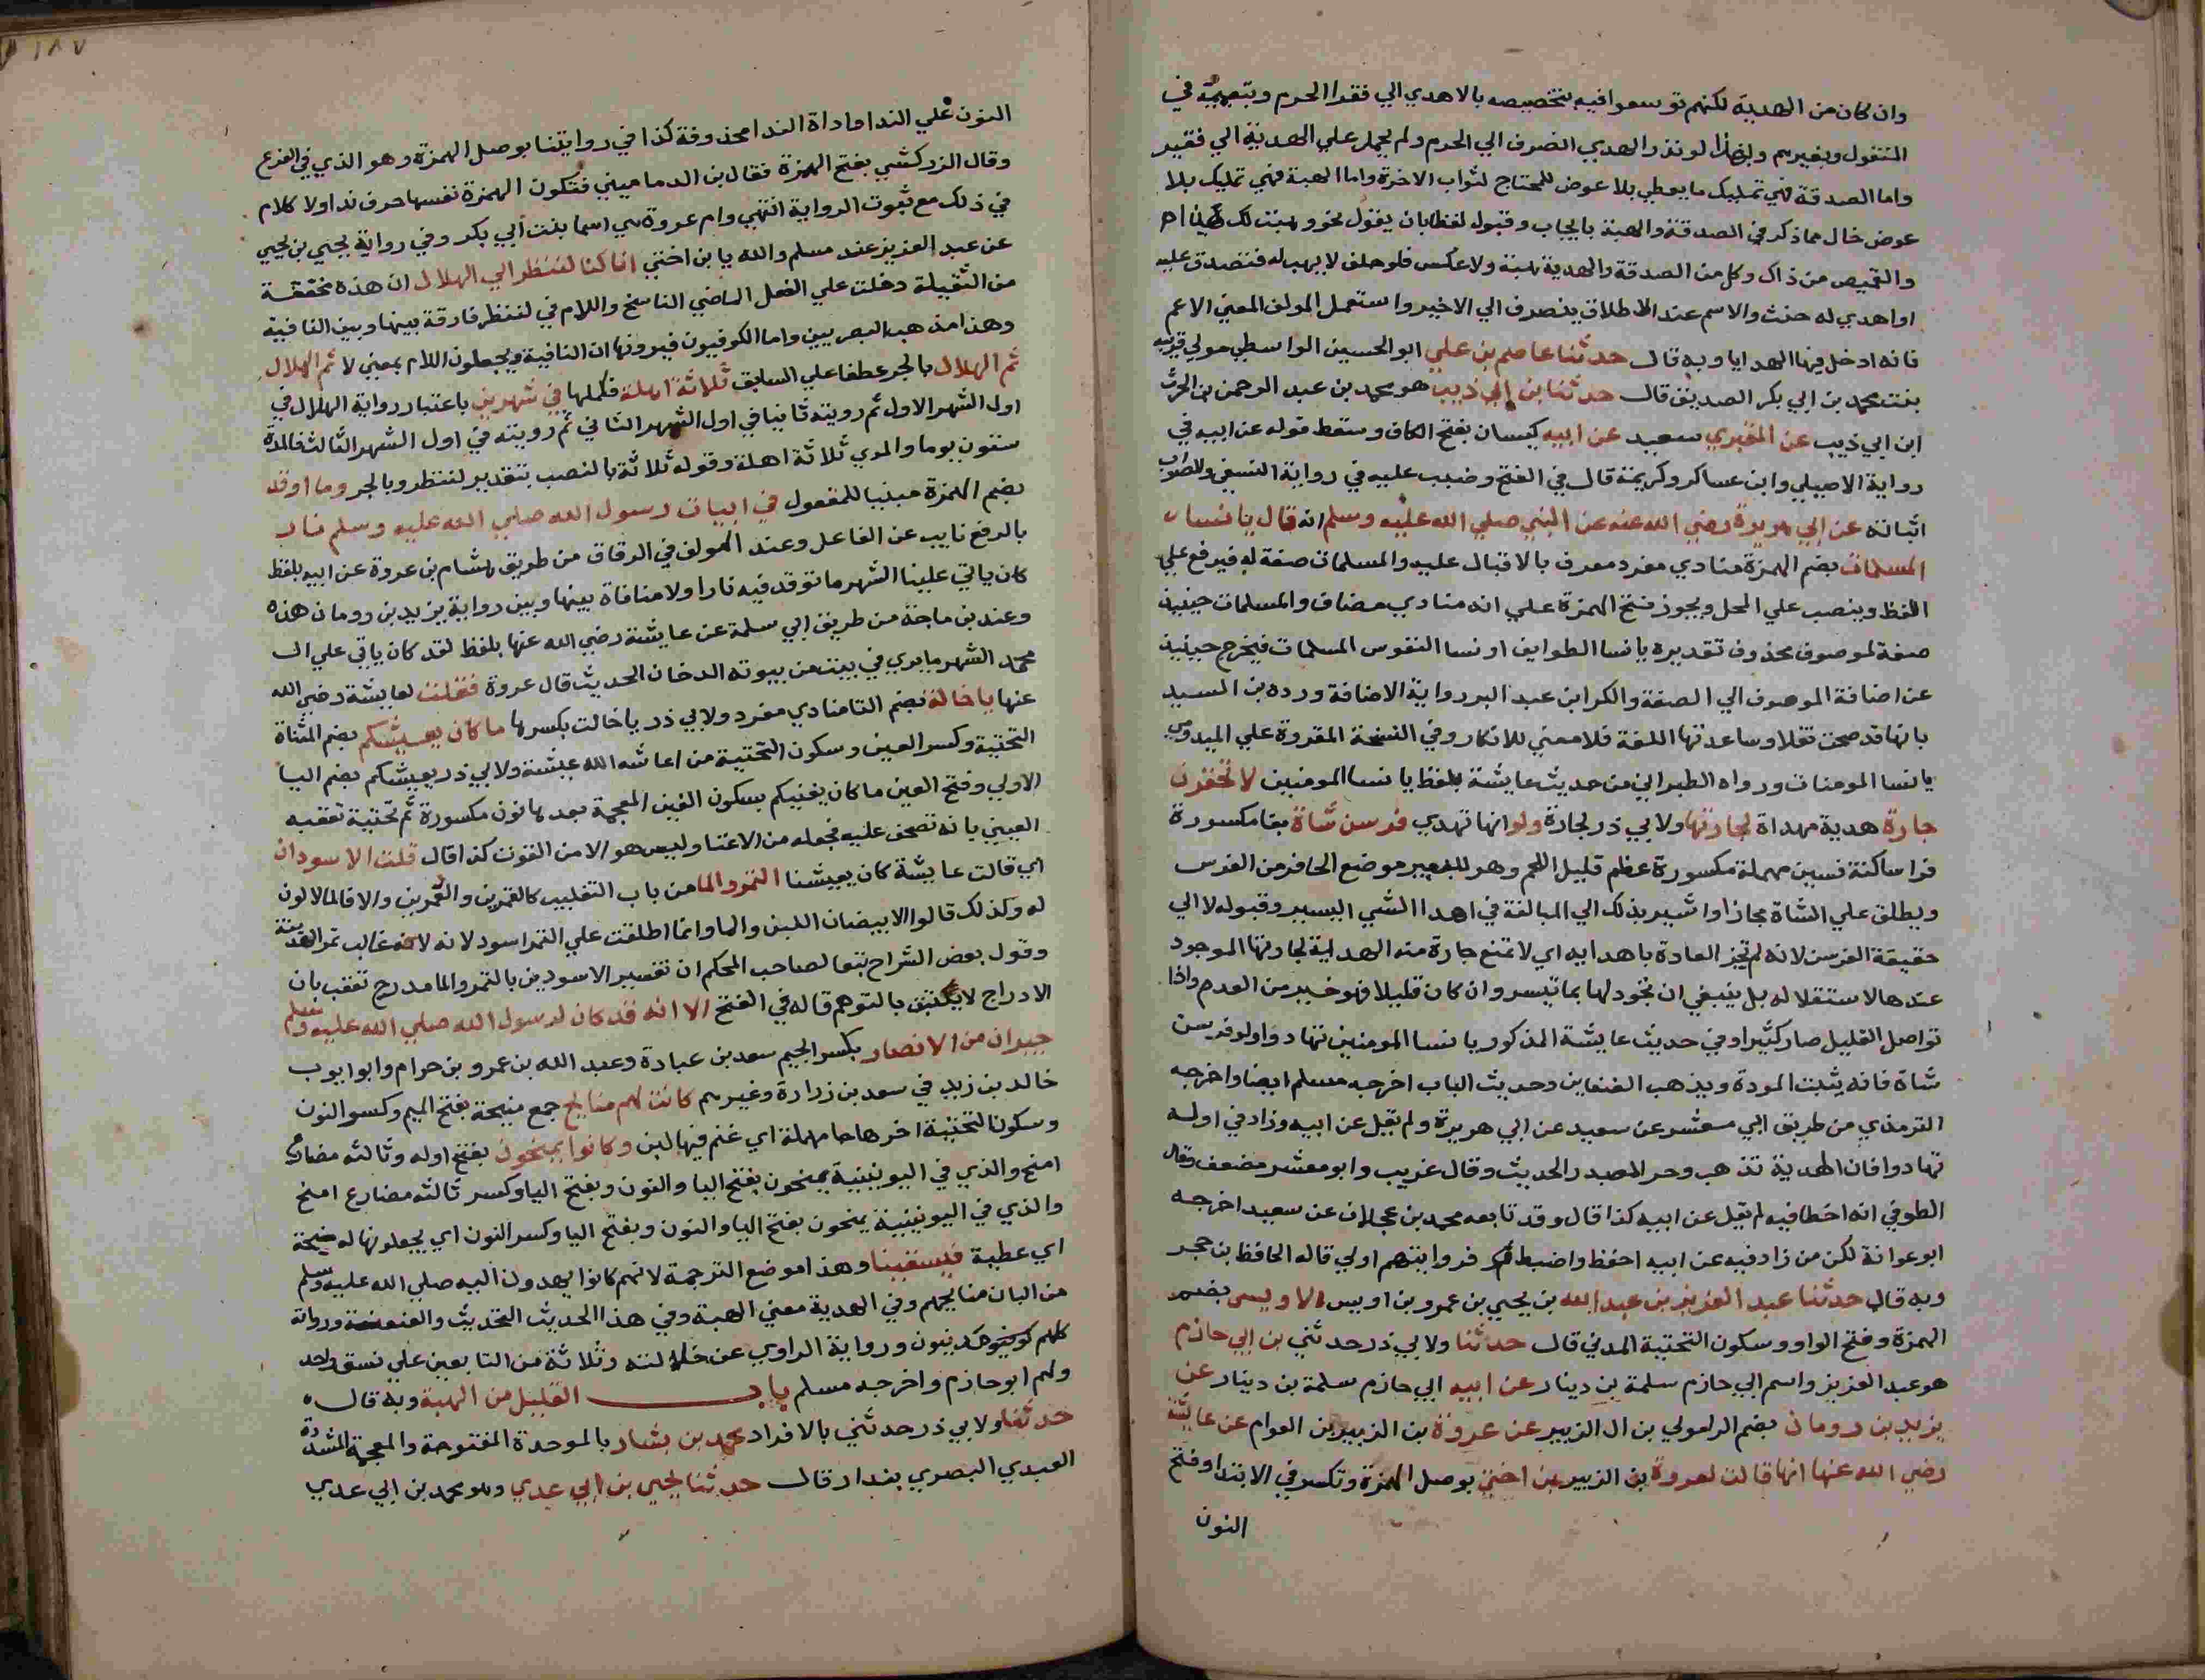 وان كان من الهدية لكنهم توسعوا فيه بتخصيصه بالاهدي الي فقرا الحرم وبتعميمه في
المنقول وبغيرهم ولهذا لو نذر الهدي انصرف الي الحرم ولم يحمل علي الهدية الي فقير
واما الصدقة فهي تمليك ما يعطي بلا عوض للمحتاج لثواب الاخرة واما الهبة فهي تمليك بلا
عوض خال مما ذكر في الصدقة والهبة بايجاب وقبول لفظا بان يقول نحو وهبت لك هذا اه
والقميص من ذاك وكل من الصدقة والهدية هبة ولا عكس فلو حلف لا يهب له فتصدق عليه
او اهدي له حنث والاسم عند الاطلاق ينصرف الي الاخير واستعمل المولف المعني الاعم
فانه ادخل فيها الهدايا وبه قال حدثنا عاصم بن علي ابو الحسين الواسطي مولي قريبة
بنت محمد بن ابي بكر الصديق قال حدثنا بن ابي ذيب هو محمد بن عبد الرحمن بن الحرث
ابن ابي ذيب عن المقبري سعيد عن ابيه كيسان بفتح الكاف وسقط قوله عن ابيه في
رواية الاصيلي وابن عساكر وكريمة قال في الفتح وضبب عليه في رواية النسفي والصواب
اثباته عن ابي هريرة رضي الله عنه عن النبي صلي الله عليه وسلم انه قال يا نساء
المسلمات بضم الهمزة منادي مفرد معرف بالاقبال عليه والمسلمات صفة له فيرفع علي
اللفظ وينصب علي المحل ويجوز فتح الهمزة علي انه منادي مضاف والمسلمات حينيذ
صفة لموصوف محذوف تقديره يا نسا الطوايف او نسا النفوس المسلمات فيخرج حينيذ
عن اضافة الموصوف الي الصفة وانكر ابن عبد البر رواية الاضافة ورده بن السيد
بانها قد صحت نقلا وساعدتها اللغة فلا معني للانكار وفي النسخة المقروة علي الميدومي
يا نسا المومنات ورواه الطبراني من حديث عايشة بلفظ يا نسا المومنين لا تحقرن
جارة هدية مهداة لجارتها ولابي ذر لجارة ولو انها تهدي فرسن شاة بفا مكسورة
فرا ساكنة فسين مهملة مكسورة عظم قليل اللحم وهو للبعير موضع الحافر من الفرس
ويطلق علي الشاة مجازا واشير بذلك الي المبالغة في اهدا الشي اليسير وقبوله لا الي
حقيقة الفرسن لانه لم تجز العادة باهدايه اي لا تمنع جارة من الهدية لجارتها الموجود
عندها لاستقلاله بل ينبغي ان تجود لها بما تيسر وان كان قليلا فهو خير من العدم واذا
تواصل القليل صار كثيرا وفي حديث عايشة المذكور يا نسا المومنين تهادوا ولو فرسن
شاة فانه يثبت المودة ويذهب الضغاين وحديث الباب اخرجه مسلم ايضا واخرجه
الترمذي من طريق ابي معشر عن سعيد عن ابي هريرة ولم يقل عن ابيه وزاد في اوله
تهادوا فان الهدية تذهب وحر الصدر الحديث وقال غريب وابو معشر مضعف وقال
الطوفي انه اخطا فيه لم يقل عن ابيه كذا قال وقد تابعه محمد بن عجلان عن سعيد اخرجه
ابو عوانة لكن من زاد فيه عن ابيه احفظ واضبط فروايتهم اولي قاله الحافظ بن حجر
وبه قال حدثنا عبد العزيز بن عبد الله بن يحيي بن عمرو بن اويس الاويسي بضم
الهمزة وفتح الواو وسكون التحتية المدني قال حدثنا ولابي ذر حدثني بن ابي حازم
هو عبد العزيز واسم ابي حازم سلمة بن دينار عن ابيه ابي حازم سلمة بن دينار عن
يزيد بن رومان بضم الرا مولي بن ال الزبير عن عروة بن الزبير بن العوام عن عايشة
رضي الله عنها انها قالت لعروة بن الزبير بن اختي بوصل الهمزة وتكسر في الابتدا وفتح
النون
١٨٧
النون علي الندا واداة الندا محذوفة كذا في روايتنا بوصل الهمزة وهو الذي في الفرع
وقال الزركشي بفتح الهمزة فقال بن الدماميني فتكون الهمزة نفسها حرف ندا ولا كلام
في ذلك مع ثبوت الرواية انتهي وام عروة هي اسما بنت ابي بكر وفي رواية يحيي بن يحيي
عن عبد العزيز عند مسلم والله يا بن اختي انا كنا لننظر الي الهلال ان هذه مخففة
من الثقيلة دخلت علي الفعل الماضي الناسخ واللام في لننظر فارقة بينها وبين النافية
وهذا مذهب البصريين واما الكوفيون فيرونها ان النافية ويجعلون اللام بمعني لا ثم الهلال
ثم الهلال بالجر عطفا علي السابق ثلاثة اهلة فكملها في شهرين باعتبار رواية الهلال في
اول الشهر الاول ثم رويته ثانيا في اول الشهر الثاني ثم رويته في اول الشهر الثالث فالمدة
ستون يوما والمري ثلاثة اهلة وقوله ثلاثة بالنصب بتقدير لننظر وبالجر وما اوقد
بضم الهمزة مبنيا للمفعول في ابيات رسول الله صلي الله عليه وسلم نار
بالرفع نايب عن الفاعل وعند المولف في الرقاق من طريق هشام بن عروة عن ابيه بلفظ
كان ياتي علينا الشهر ما نوقد فيه نارا ولا منافاة بينها وبين رواية يزيد بن رومان هذه
وعند بن ماجة من طريق ابي سلمة عن عايشة رضي الله عنها بلفظ لقد كان ياتي علي ال
محمد الشهر ما يري في بيت من بيوته الدخان الحديث قال عروة فقلت لعايشة رضي الله
عنها يا خالة بضم التا منادي مفرد ولابي ذر يا خالت بكسرها ما كان يعيشكم بضم المثناة
التحتية وكسر العين وسكون التحتية من اعاشه الله عيشة ولابي ذر يعيشكم بضم اليا
الاولي وفتح العين ما كان يغنيكم بسكون الغين المعجمة بعدها نون مكسورة ثم تحتية تعقبه
العيني بانه تصحف عليه فجعله من الاغنا وليس هو الا من القوت كذا قال قلت الاسودان
اي قالت عايشة كان يعيشنا التمر والما من باب التغليب كالقمرين والعمرين والا فالما لا لون
له وكذلك قالوا الابيضان اللبن والما وانما اطلقت علي التمر اسود لانه غالب تمر المدينة
وقول بعض الشراح تبعا لصاحب المحكم ان تفسير الاسودين بالتمر والما مدرج تعقب بان
الادراج لا يثبت بالتوهم قاله في الفتح الا انه قد كان لرسول الله صلي الله عليه وسلم
جيران من الانصار بكسر الجيم سعد بن عبادة وعبد الله بن عمرو بن حرام وابو ايوب
خالد بن زيد في سعد بن زرارة وغيرهم كانت لهم منايح جمع منيحة بفتح الميم وكسر النون
وسكون التحتية اخرها حا مهملة اي غنم فيها لبن وكانوا يمنحون بفتح اوله وثالثه مضارع
امنح والذي في اليونينية يمنحون بفتح اليا والنون وبفتح اليا وكسر ثالثه مضارع امنح
والذي في اليونينية يمنحون بفتح اليا والنون وبفتح اليا وكسر النون اي يجعلونها له منيحة
اي عطية فيسقينا وهذا موضع الترجمة لانهم كانوا يهدون اليه صلي الله عليه وسلم
من البان منايحهم وفي الهدية معني الهبة وفي هذا الحديث التحديث والعنعنة ورواته
كلهم مدنيون ورواية الراوي عن خالته وثلاثة من التابعين علي نسق واحد
ولهم ابو حازم واخرجه مسلم باب القليل من الهبة وبه قال
حدثنا ولابي ذر حدثني بالافراد محمد بن بشار بالموحدة المفتوحة والمعجمة المشددة
العبدي البصري بندار قال حدثنا يحيي بن ابي عدي وهو محمد بن ابي عدي